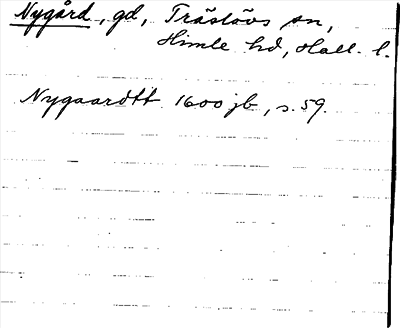 Nygård, gd, Träslövs sn,
Himle hd, Hall. l.
Nygaardtt 1600 jb, s. 59.